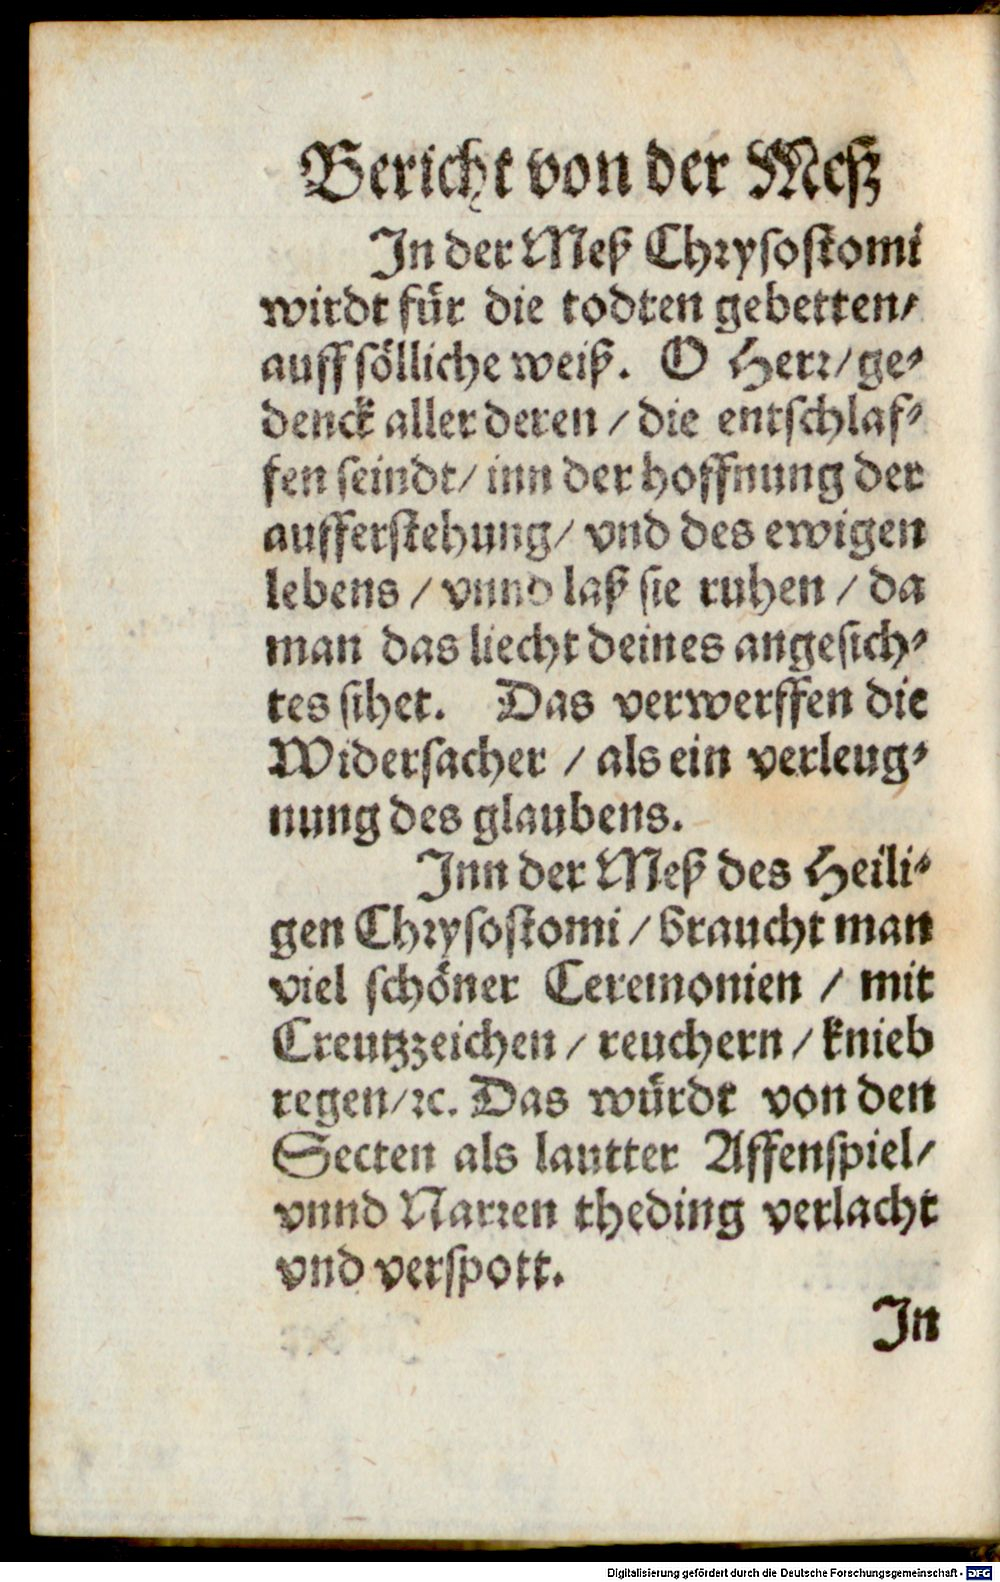 Bericht von der Meſz
In der Meß Chryſoſtomi
wirdt für die todten gebetten/
auff ſölliche weiß. O Herr/ ge⸗
denck aller deren / die entſchlaf⸗
fen ſeindt/ inn der hoffnung der
aufferſtehung/ vnd des ewigen
lebens / vnnd laß ſie ruhen / da
man das liecht deines angeſich⸗
tes ſihet. Das verwerffen die
Widerſacher / als ein verleug⸗
nung des glaubens.
Inn der Meß des Heili⸗
gen Chryſoſtomi / braucht man
viel ſchöner Ceremonien / mit
Creutzzeichen / reuchern / knieb
regen/ ꝛc. Das würdt von den
Secten als lautter Affenſpiel/
vnnd Narren theding verlacht
vnd verſpott.
In
Digitalisierung gefördert durch die Deutsche Forschungsgemeinschaft - DFG